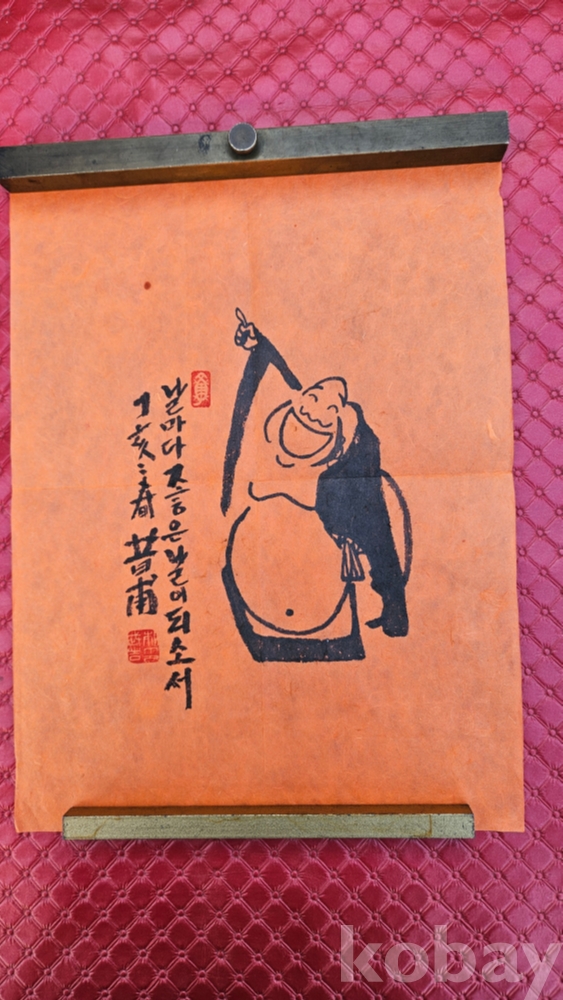 날마다 좋은 날이 되소서
丁亥 春 甫
kobay